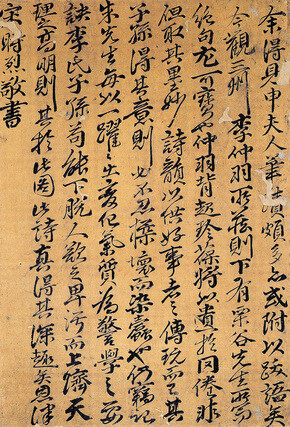 余得見申夫人筆蹟頗多也或附以跋語矣
今觀三州李仲羽所藏則下有栗谷先生所寫
絶句尤可寶也仲羽將以遺於
但取其畫妙詩韻以供好事者之傳玩而已其
子孫得其意則必不忍壞而染蠹也仍竊記
朱先生每以一躍躍出變化氣質爲爲學之要
訣李氏子孫苟能下脫人欲之卑污而上濟天
理之高明則其於此圖此詩眞得其深趣矣恩津
宋時烈敬書